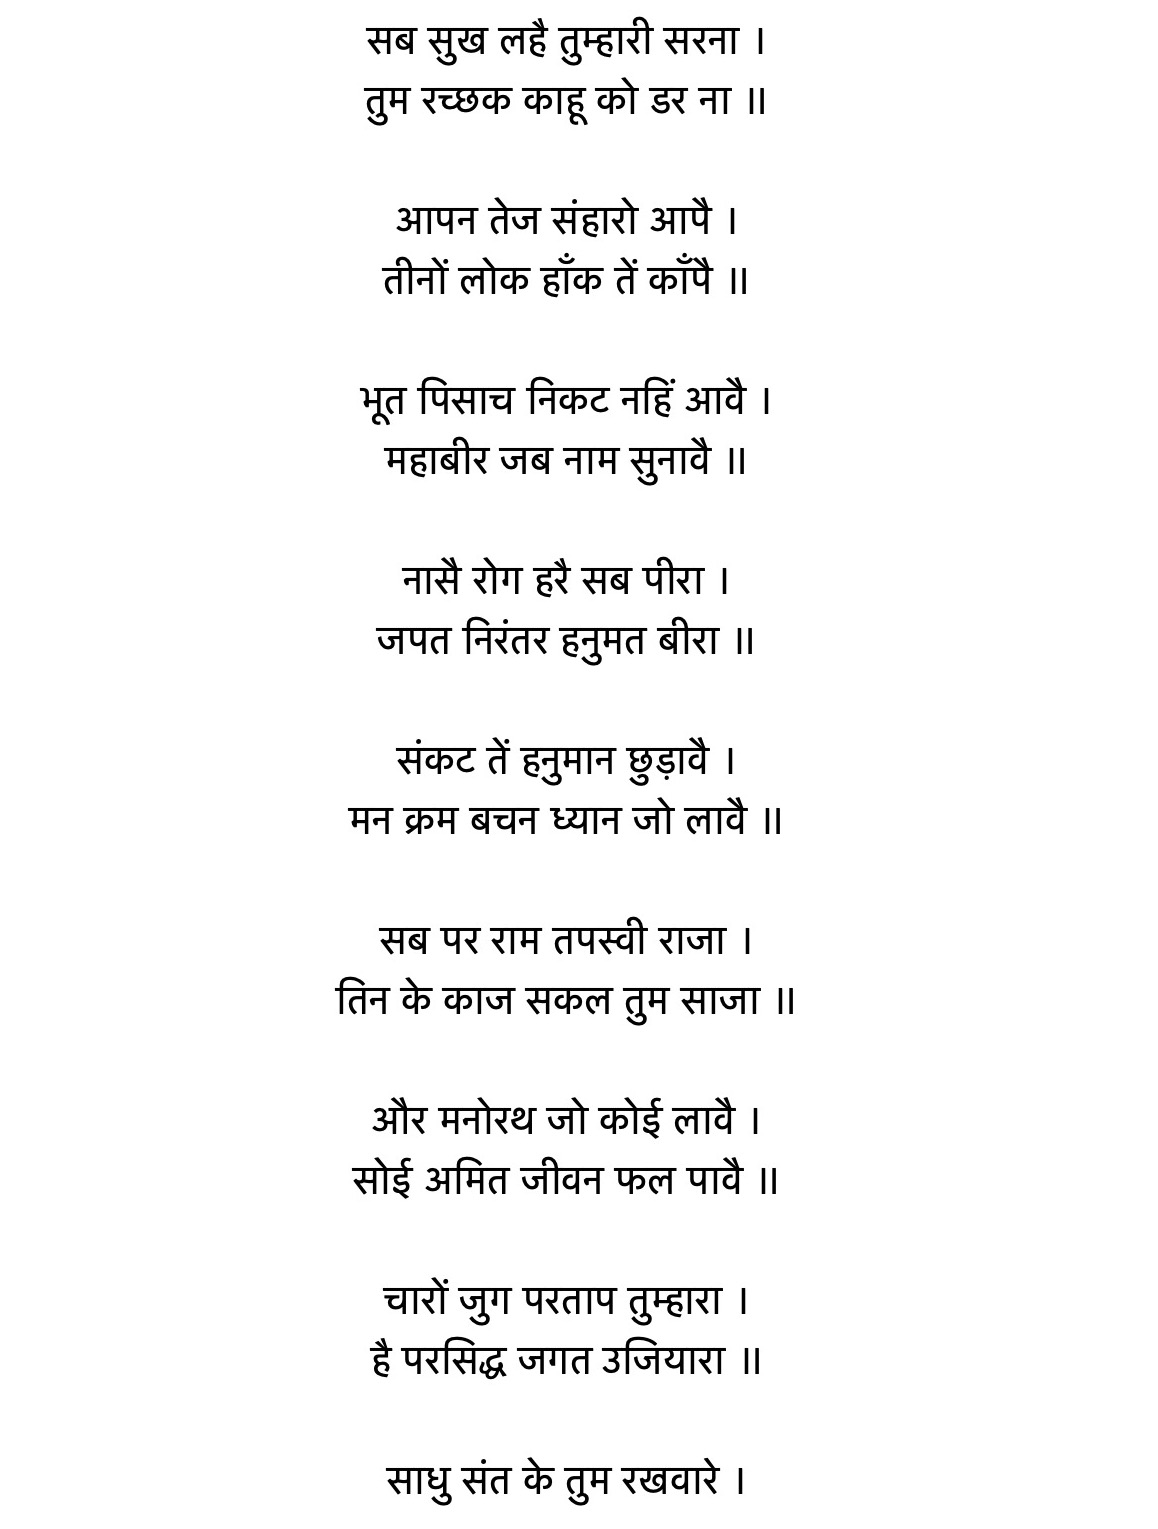 सब सुख लहै तुम्हारी सरना ।
तुम रच्छक काहू को डर ना ॥
आपन तेज संहारो आपै ।
तीनों लोक हाँक तें काँपै ॥
भूत पिसाच निकट नहिं आवै ।
महाबीर जब नाम सुनावै ॥
नासै रोग हरै सब पीरा ।
जपत निरंतर हनुमत बीरा ॥
संकट तें हनुमान छुड़ावै ।
मन क्रम बचन ध्यान जो लावै ॥
सब पर राम तपस्वी राजा ।
तिन के काज सकल तुम साजा ॥
और मनोरथ जो कोई लावै ।
सोई अमित जीवन फल पावै ॥
चारों जुग परताप तुम्हारा ।
है परसिद्ध जगत उजियारा ॥
साधु संत के तुम रखवारे ।